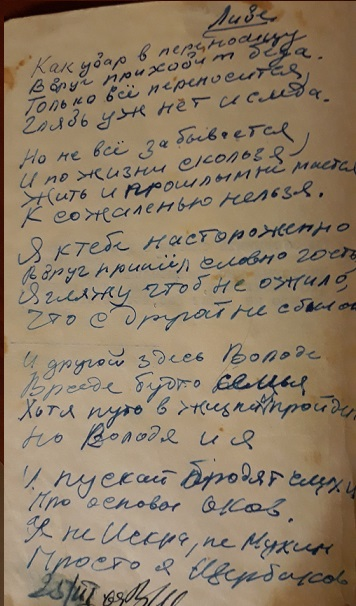 Лиде
Как удар в переносицу
Вдруг приходит беда.
Только всё переносится,
Глядь уж нет и следа.
Но не всё забывается
И по жизни скользя,
Жить и прошлым не маяться
К сожаленью нельзя.
Я к тебе настороженно
Вдруг пришёл словно гость
Я гляжу чтоб не ожило,
Что с другой не сбылось
И другой здесь Володя
Вроде будто семья
Хотя путь в жизни пройден
Но Володя и я
И пускай бродят слухи
Про основы оков.
Я не Искра, не Мухин
Просто я Щербаков
23/III